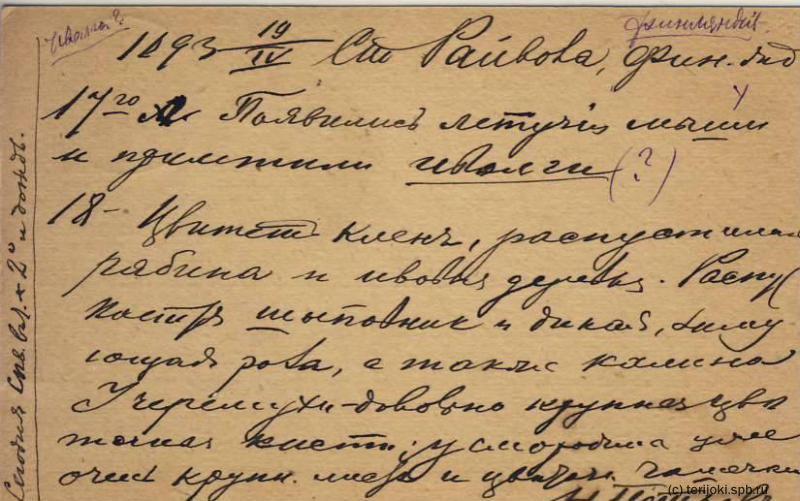 Иволга?
Финляндій.
1893 19/IV Ст Райвола, Фин. жд
17го Появились летучія мыши
и прилетили иволги (?)
18 - Цвететъ кленъ, распустилась
рябина и ивовыя деревья. Распу
кастся шыповникъ и дикая,
ющая роза, а также калина
У черемухи довольно крупная цве
точная кисть, у смородины уже
очень крупн. листъ и цветочн.
Сегодня Сев. вет. + 2° и дождь.
(c) terijoki.spb.ru